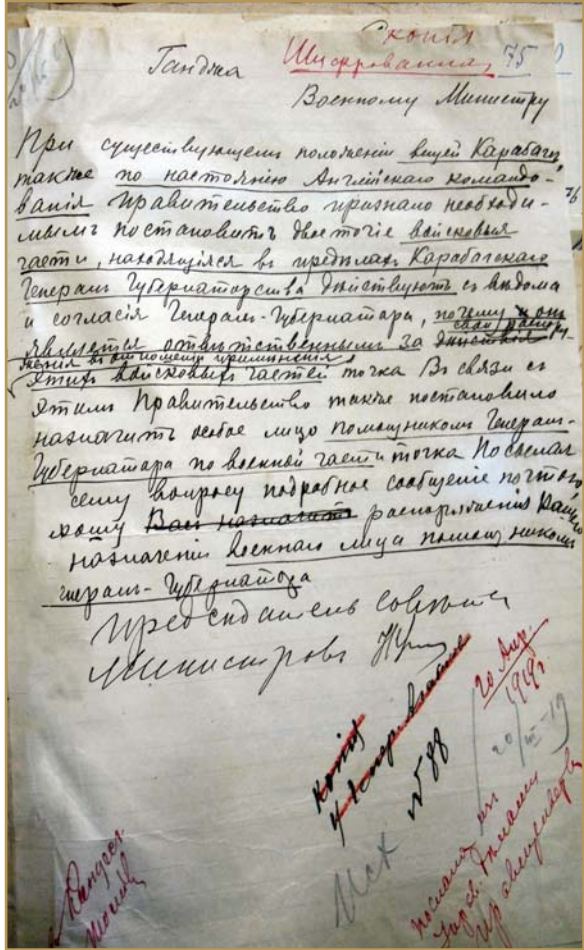 Копія
Шифрованная 75
Ганджа
Военному Министру
При существующемъ положеніи вещей Карабагѣ
также по настоянію Англійскаго командо-
ванія Правительство признало необходи- 76
мымъ постановить двоеточіе войсковыя
части, находящіяся въ предѣлахъ Карабагскаго
Генералъ Губернаторства дѣйствуютъ съ вѣдома
и согласія Генералъ-Губернатора, почему и онъ
является отвѣтственнымъ за дѣйствія свои распоря-
женія въ отношеніи примѣненія
этихъ войсковыхъ частей точка Въ связи съ
этимъ Правительство также постановило
назначить особое лицо помощникомъ Генералъ-
Губернатора по военной части точка Посылая
сему вопросу подробное сообщеніе почтою
прошу Васъ назначить распоряженія Вашего
назначеніи военнаго лица помощникомъ
генералъ-Губернатора
Предсѣдатель Совѣта
Министровъ
20 Апр.
1919г.
20/III-19
копія
№ 88
Исх
послана